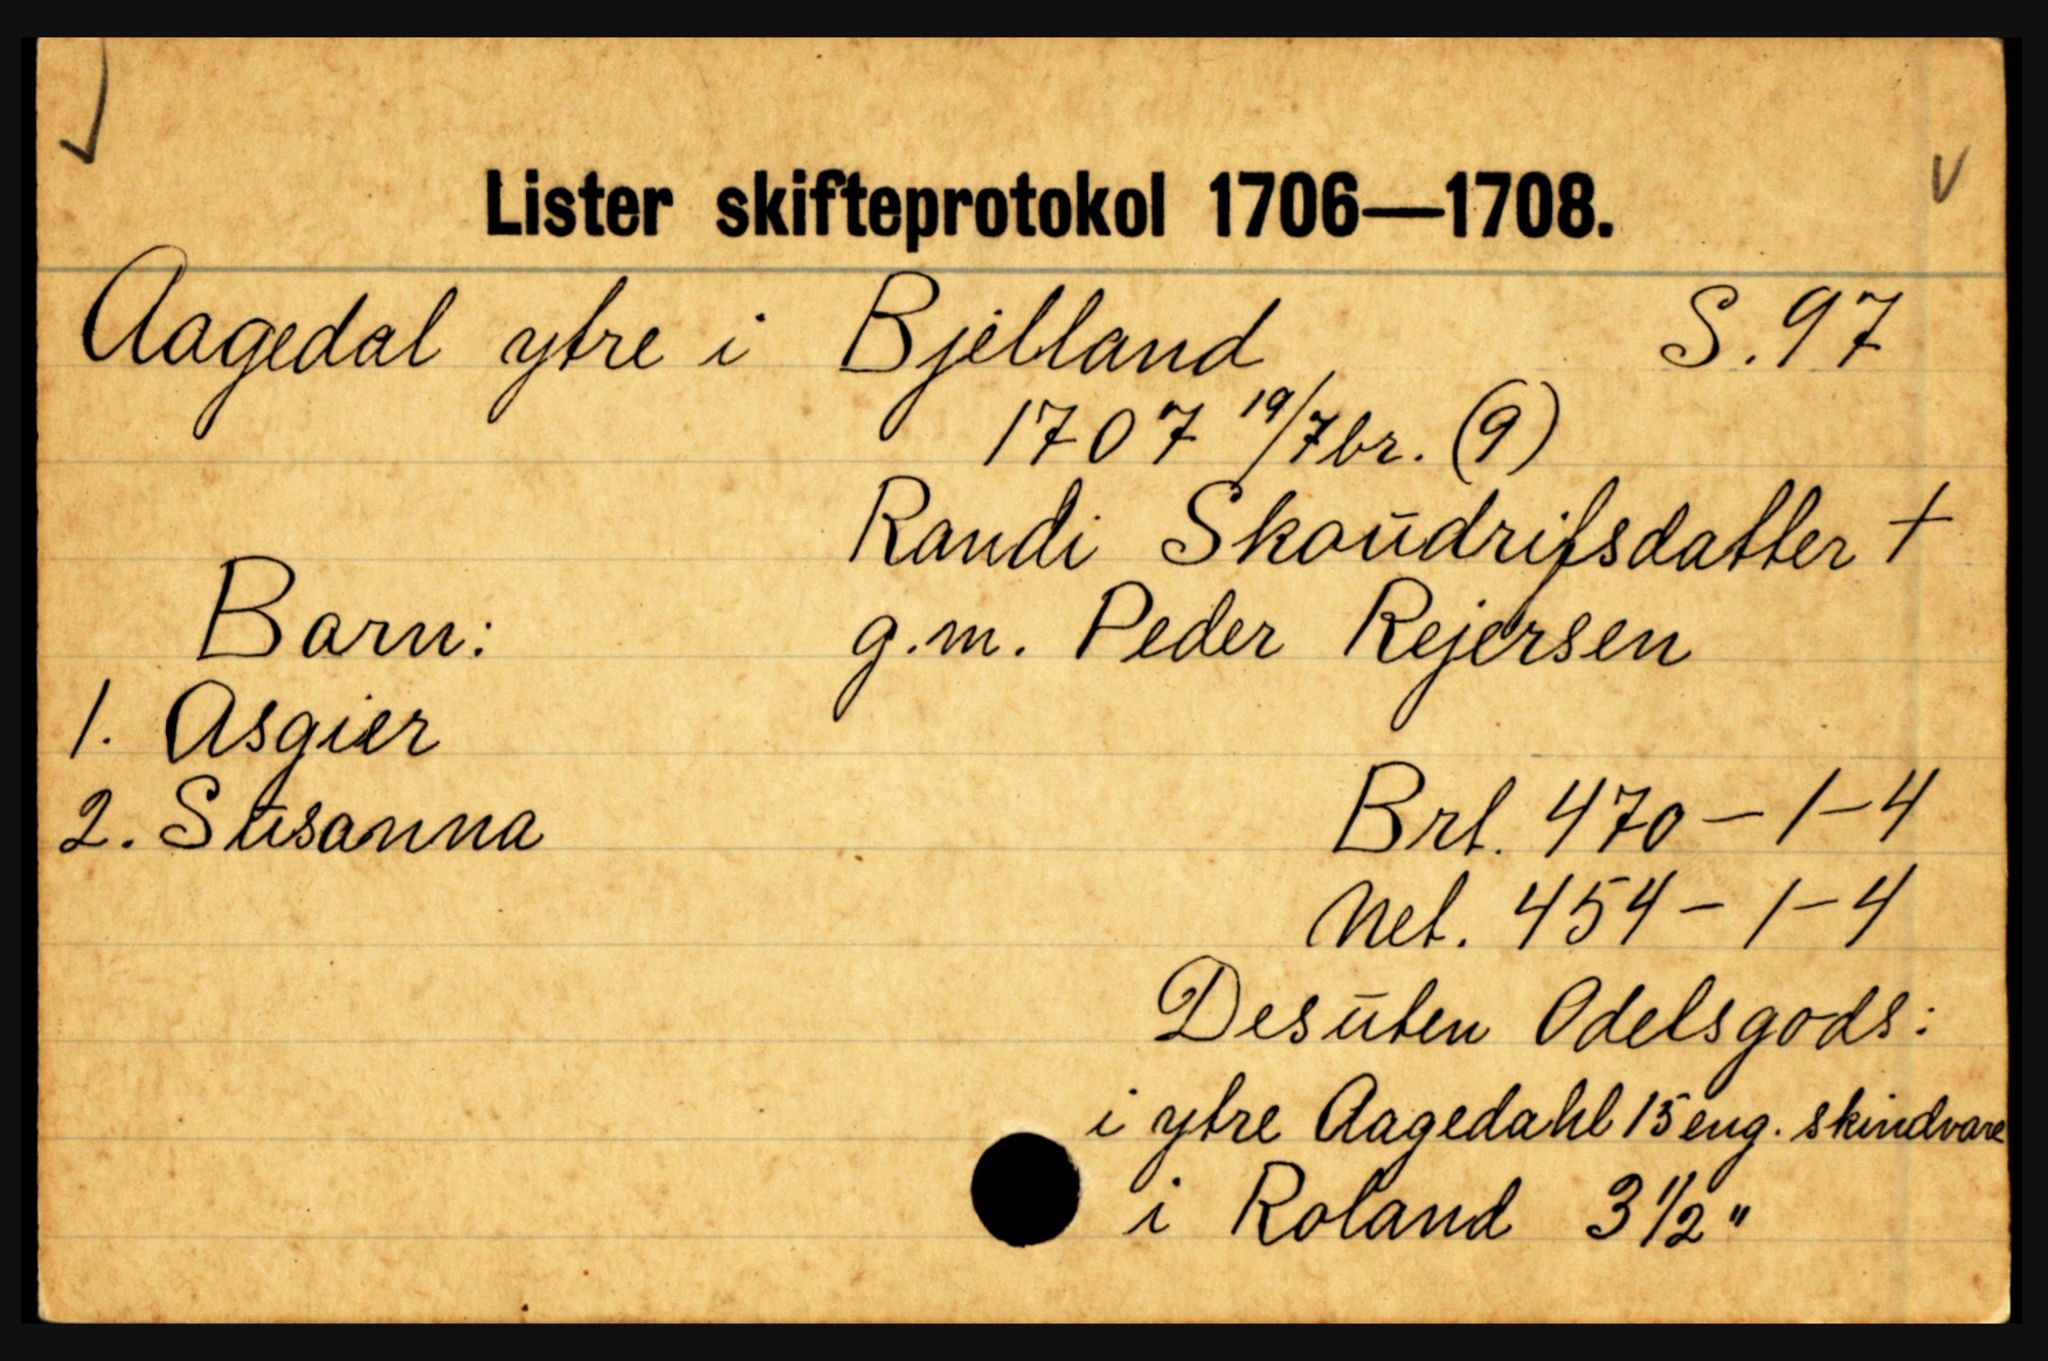 Lister skifteprotokol 1706—1708.
Aagedal ytre i Bjelland S. 97
1707 19/7br. (9)
Randi Skoŭdrifsdatter +
g.m. Peder Rejersen
Barn:
1. Asgier
2. Sŭsanna
Brt. 470 – 1 – 4
Net. 454 – 1 – 4
Desŭten Odelsgods:
i ytre Aagedahl 15 eng. skindvare
i Roland 3 1/2 "